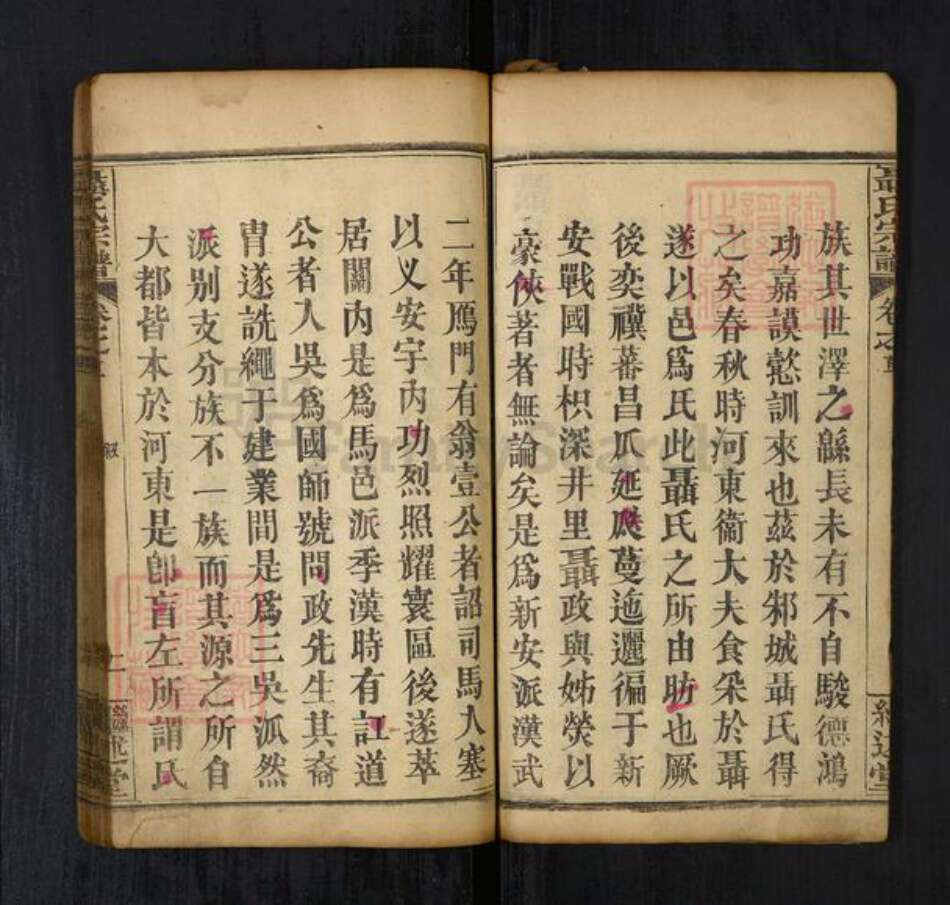 聶氏宗譜
卷之首
族其世澤之緜長未有不自駿德鴻
功嘉謨懿訓來也茲於邾城聶氏得
之矣春秋時河東衞大夫食采於聶
遂以邑爲氏此聶氏之所由昉也厥
後奕禩蕃昌瓜延瓞蔓迤邐徧于新
安戰國時枳深井里聶政與姊榮以
豪俠著者無論矣是爲新安派漢武
二年鴈門有翁壹公者詔司馬大塞
以乂安宇內功烈照耀寰區後遂萃
居關內是爲馬邑派季漢時有訌道
公者入吳爲國師號問政先生其裔
胄遂詵繩于建業間是爲三吳派然
派别支分族不一族而其源之所自
大都皆本於河東是卽盲左所謂氏
氏宗譜
卷之
敘
堂
FamilySearch